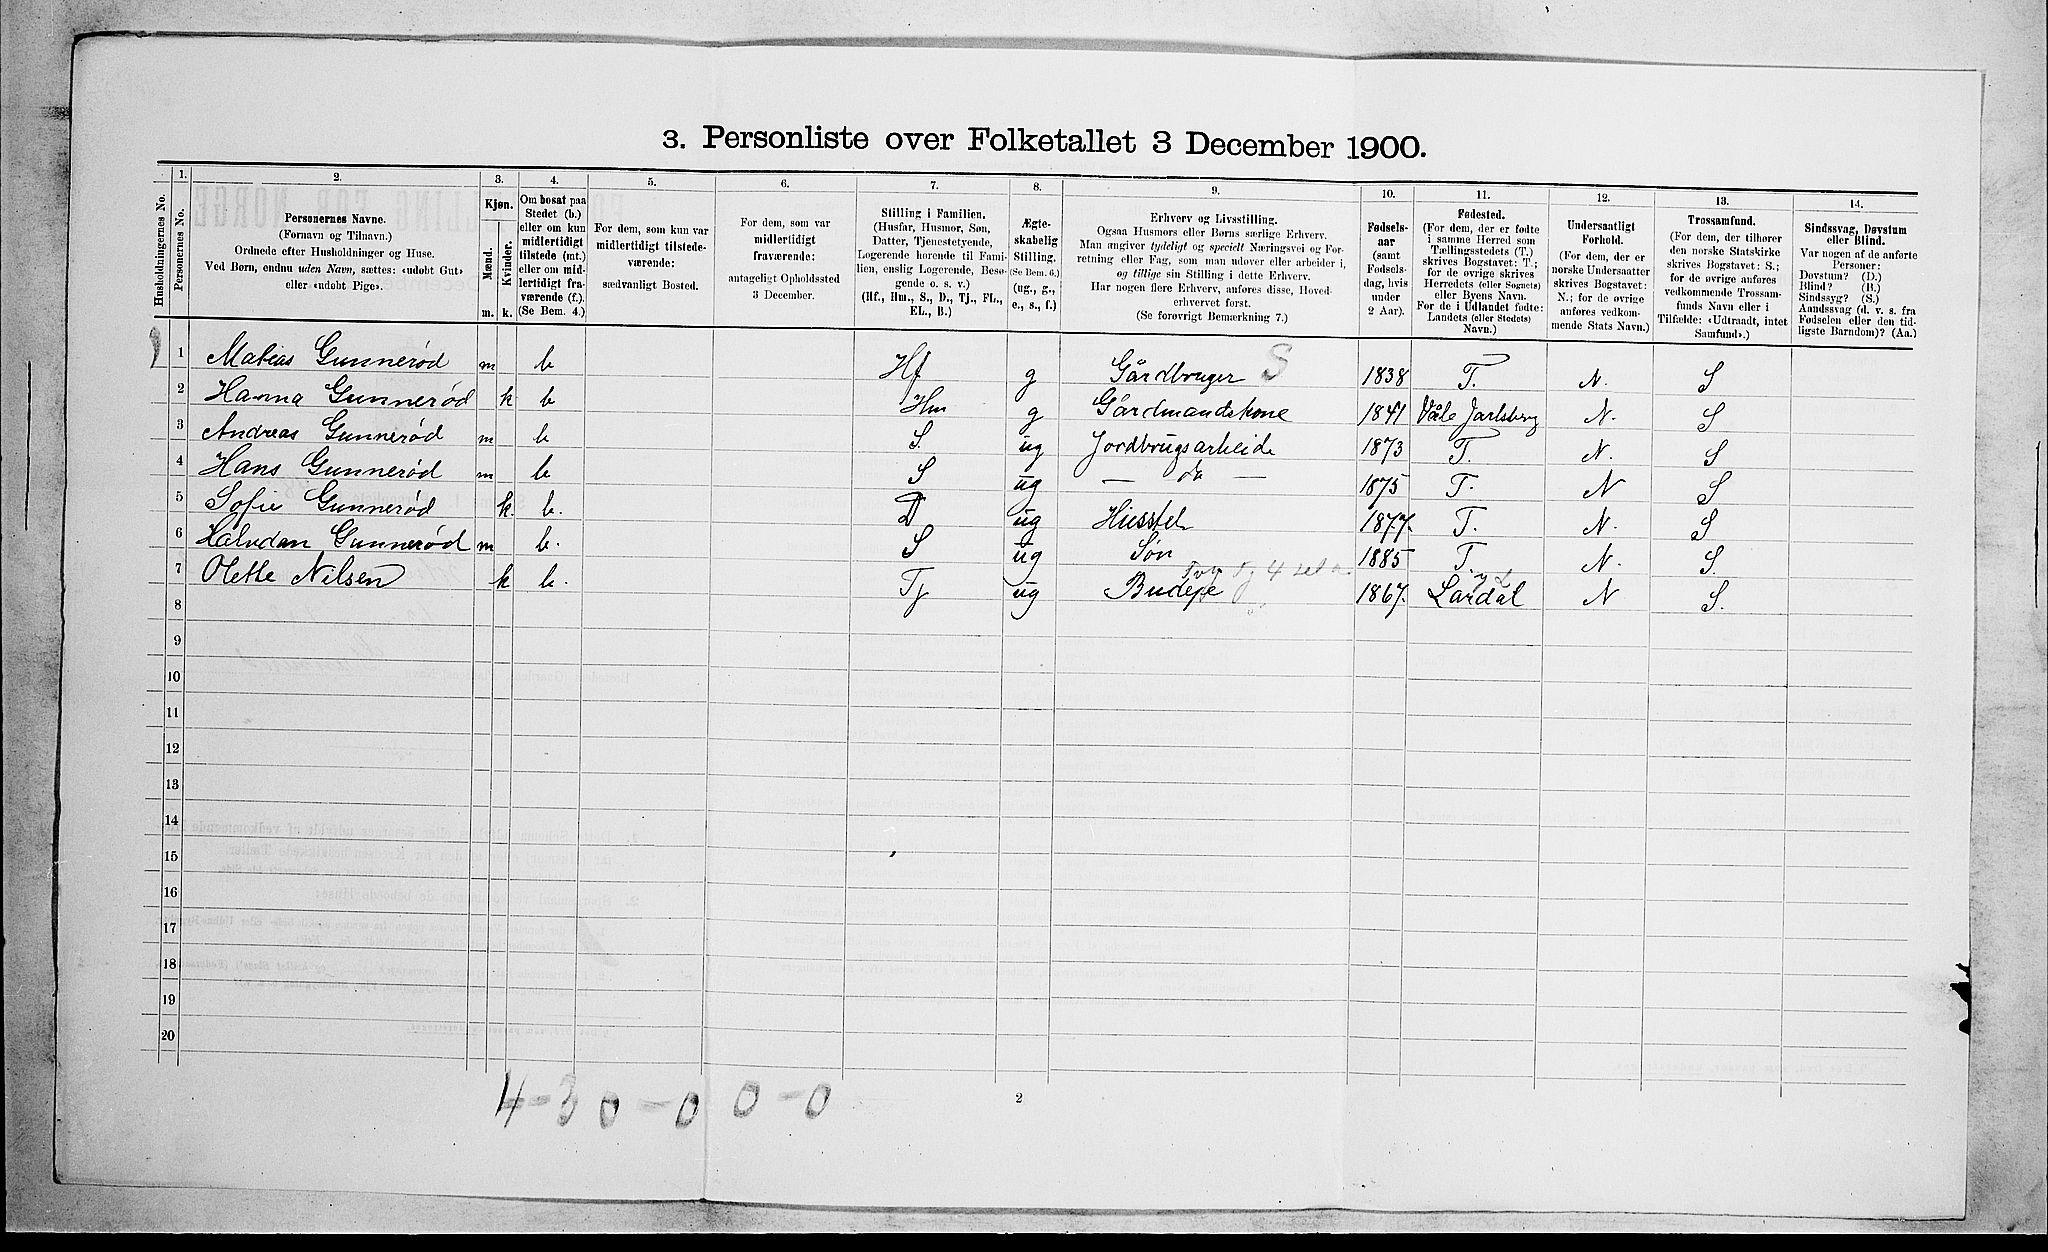 3. Personliste over Folketallet 3 December 1900.
Husholdningernes No.
1.
Personernes No.
2.
Personernes Navne.
(Fornavn og Tilnavn.)
Ordnede efter Husholdninger og Huse.
Ved Børn, endnu uden Navn, sættes: «udøbt Gut»
eller «udøbt Pige».
3.
Kjøn.
Mænd.
Kvinder.
m. k.
4.
Om bosat paa
Stedet (b.)
eller om kun
midlertidigt
tilstede (mt.)
eller om mid-
lertidigt fra-
værende (f.).
(Se Bem. 4.)
5.
For dem, som kun var
midlertidigt tilstede-
værende:
sædvanligt Bosted.
6.
For dem, som var
midlertidigt
fraværende:
antageligt Opholdssted
3 December.
7.
Stilling i Familien.
(Husfar, Husmor, Søn,
Datter, Tjenestetyende,
Logerende hørende til Fami-
lien, enslig Logerende, Besø-
gende o. s. v.)
(Hf., Hm., S., D., Tj., FL.,
EL., B.)
8.
Ægte-
skabelig
Stilling.
(Se Bem. 6.)
(ug., g.,
e., s., f.)
9.
Erhverv og Livsstilling.
Ogsaa Husmors eller Børns særlige Erhverv.
Man angiver tydeligt og specielt Næringsvei og For-
retning eller Fag, som man udøver eller arbeider i,
og tillige sin Stilling i dette Erhverv.
Har nogen flere Erhverv, anføres disse, Hoved-
erhvervet først.
(Se forøvrigt Bemærkning 7.)
10.
Fødsels-
aar
(samt
Fødsels-
dag, hvis
under
2 Aar).
11.
Fødested.
(For dem, der er fødte
i samme Herred som
Tællingsstedets (T.)
skrives Bogstavet: T.;
for de øvrige skrives
Herredets (eller Sognets)
eller Byens Navn.
For de i Udlandet fødte:
Landets (eller Stedets)
Navn.)
12.
Undersaatligt
Forhold.
(For dem, der er
norske Undersaatter
skrives Bogstavet:
N.; for de øvrige
anføres vedkom-
mende Stats Navn.)
13.
Trossamfund.
(For dem, der tilhører
den norske Statskirke
skrives Bogstavet: S.;
for de øvrige anføres
vedkommende Trossam-
funds Navn eller i
Tilfælde: «Udtraadt, intet
Samfund».)
14.
Sindssvag, Døvstum
eller Blind.
Var nogen af de anførte
Personer:
Døvstum? (D.)
Blind? (B.)
Sindssyg? (S.)
Aandssvag (d. v. s. fra
Fødselen eller den tid-
ligste Barndom)? (Aa.)
1 Matias Gunnerød m b Hf g Gårdbruger S 1838 T. N. S
2 Hanna Gunnerød k b Hm g Gårdmandskone 1841 Våle Jarlsberg N. S
3 Andreas Gunnerød m b S. ug Jordbrugsarbeide 1873 T. N. S
4 Hans Gunnerød m b S ug — do — 1875 T. N S
5 Sofie Gunnerød k. b. D ug Husstel 1877. T. N. S
6 Halvdan Gunnerød m b. S ug Søn 1885 T. N. S.
7 Olette Nilsen k b. Tj ug Budeje 1867. Lardal N S.
8
9
10
11
12
13
14
15
16
17
18
19
20
4-3 0-0 0-0
2